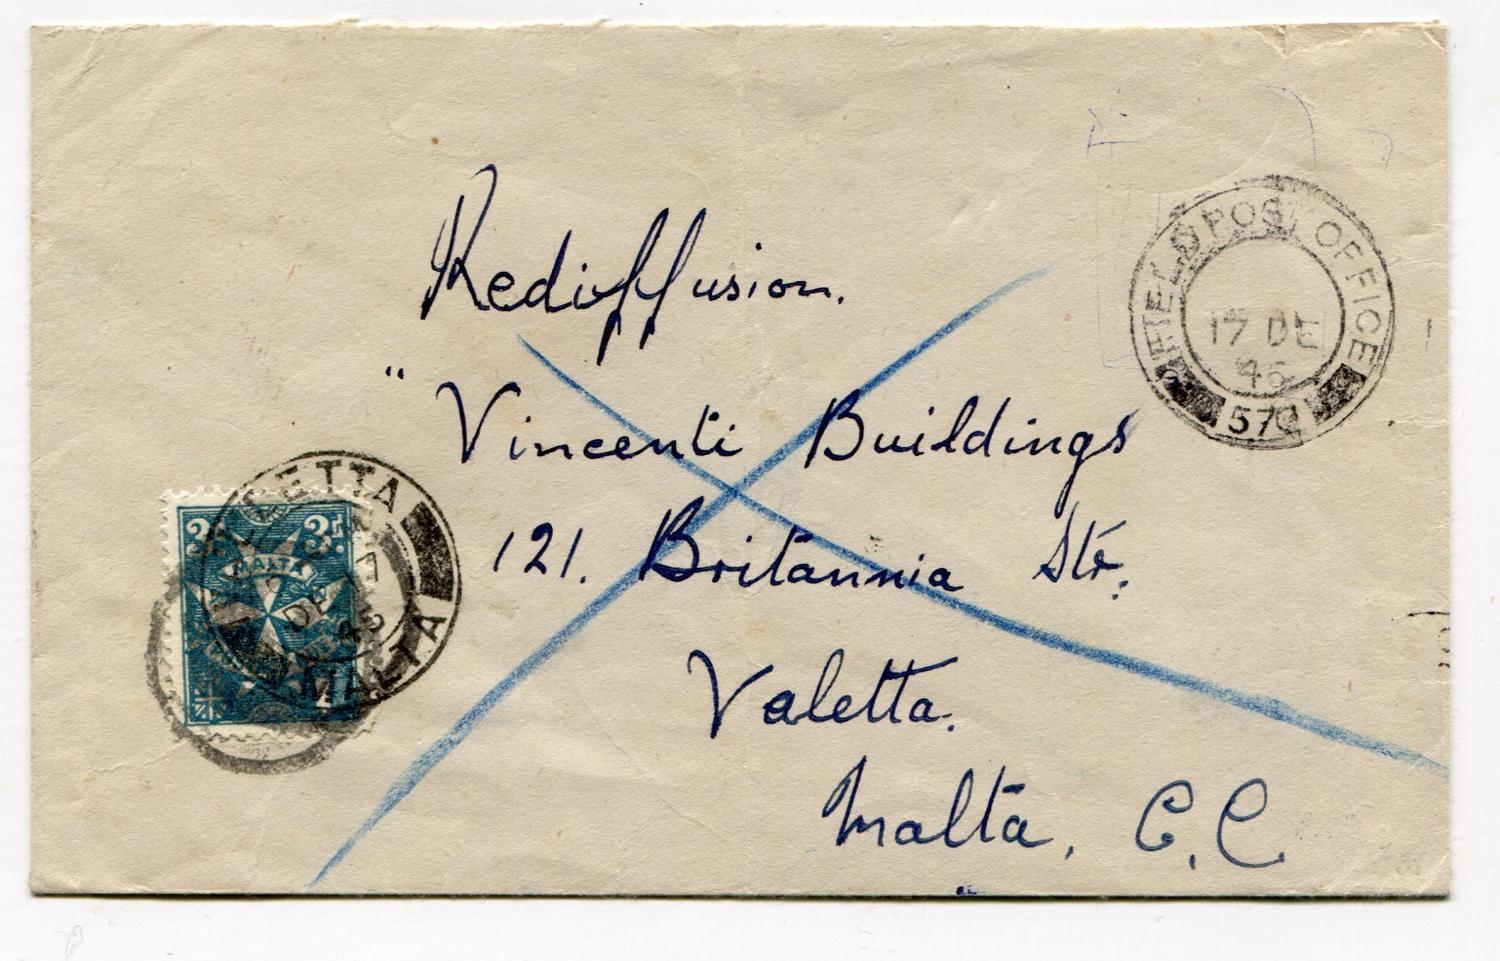 FIELD POST OFFICE
17 DE
46
Rediffusion.
" Vincenti Buildings
121. Britannia Str.
Valetta.
Malta, C.C.
VALLETTA
MALTA
DE
3
3
MALTA